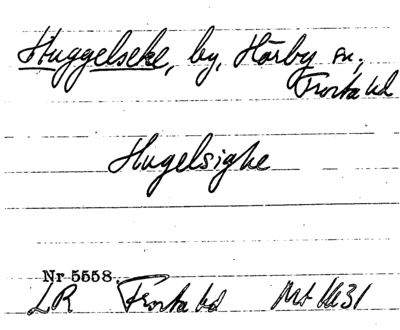 Huggelseke, by, Hörby sn,
Frosta hd
Hugelsighe
Nr 5558.
LR Frosta hd